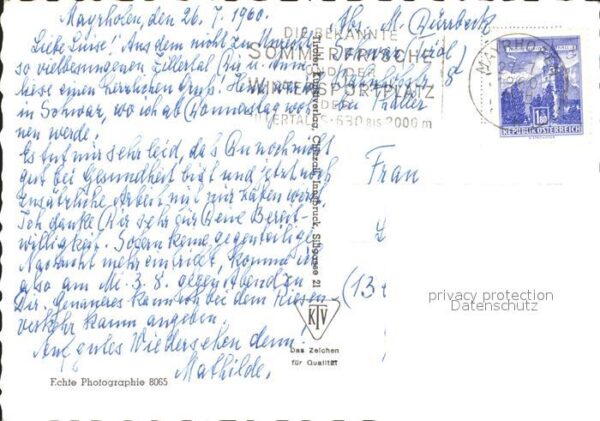 Mayrhofen den 26. 7. 1960.
Abs. M. Dürrbeck
Schwaz (Tirol)
bei Fuller
Liebe Luise! Aus dem nicht zu Unrecht
so vielbesungenen Zillertal
diese einen herzlichen Gruß.
in Schwaz, wo ich ab Donnerstag woh-
nen werde.
Es tut mir sehr leid, daß Du noch nicht
gut bei Gesundheit bist und jetzt noch
zusätzliche Arbeit mit mir haben wirst.
Ich danke Dir sehr für Deine Bereit-
willigkeit. Sofern keine gegenteilige
Nachricht mehr eintrifft, komme ich
also am Mi. 3. 8. gegen Abend zu
Dir. Genaueres kann ich bei dem Riesen-
verkehr kaum angeben.
Auf gutes Wiedersehen denn!
Mathilde.
Frau
(13
DIE BEKANNTE
SOMMERFRISCHE
UND DER
WINTERSPORTPLATZ
DES
ZILLERTALES · 630 BIS 2000 m
1.80
REPUBLIK ÖSTERREICH
Tiroler Kunstverlag, Chizzali, Innsbruck, Sillgasse 21
KTV
Das Zeichen
für Qualität
Echte Photographie 8065
privacy protection
Datenschutz